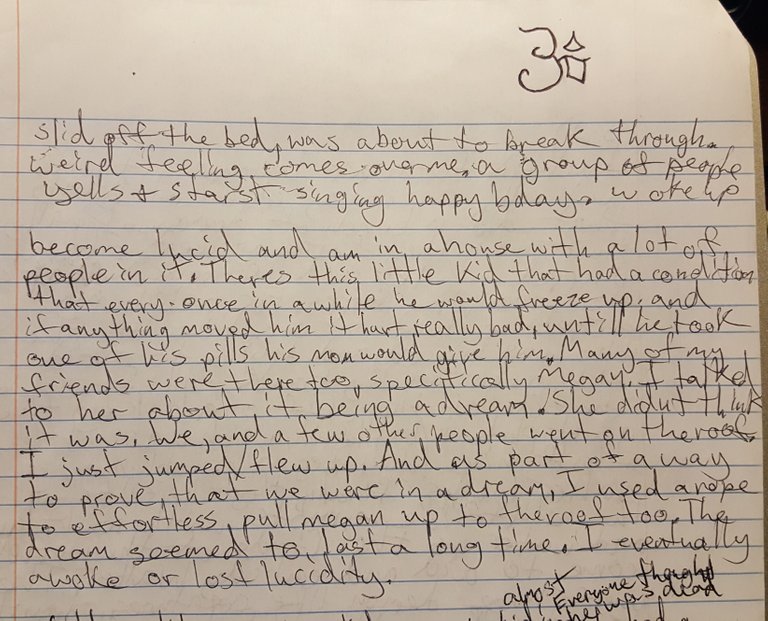 slid off the bed, was about to break through.
weird feeling comes over me, a group of people
yells & starst singing happy bday. woke up
become lucid and am in a house with a lot of
people in it. Theres this little kid that had a condition
that every once in a while he would freeze up, and
if anything moved him it hurt really bad, untill he took
one of his pills his mom would give him. Many of my
friends were there too, specifically Megan. I talked
to her about it being a dream. She didnt think
it was. We, and a few other people went on the roof.
I just jumped/flew up. And as part of a way
to prove, that we were in a dream, I used a rope
to effortless, pull megan up to the roof too. The
dream seemed to last a long time. I eventually
awoke or lost lucidity.
almost Everyone thought
was dead